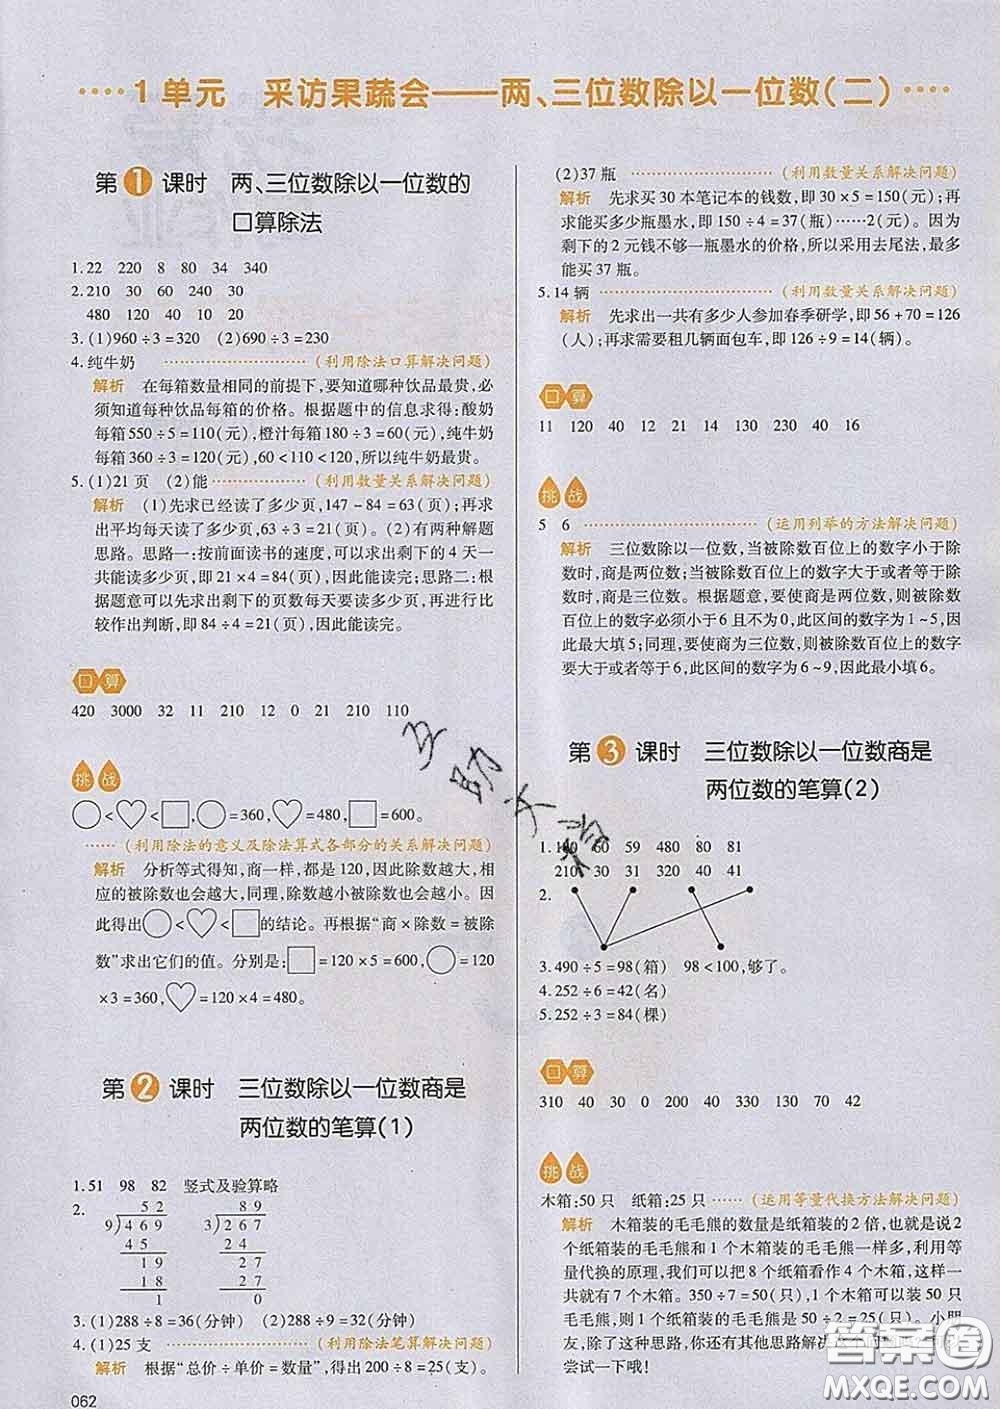 1单元 采访果蔬会——两、三位数除以一位数(二)
第1课时 两、三位数除以一位数的
口算除法
1.22 220 8 80 34 340
2.210 30 60 240 30
480 120 40 10 20
3.(1)960÷3=320 (2)690÷3=230
4.纯牛奶 (利用除法口算解决问题)
解析 在每箱数量相同的前提下,要知道哪种饮品最贵,必
须知道每种饮品每箱的价格。根据题中的信息求得:酸奶
每箱550÷5=110(元),橙汁每箱180÷3=60(元),纯牛奶
每箱360÷3=120(元),60<110<120,所以纯牛奶最贵。
5.(1)21页 (2)能 (利用数量关系解决问题)
解析 (1)先求已经读了多少页,147-84=63(页);再求
出平均每天读了多少页,63÷3=21(页)。(2)有两种解题
思路。思路一:按前面读书的速度,可以求出剩下的4天一
共能读多少页,即21×4=84(页),因此能读完;思路二:根
据题意可以先求出剩下的页数每天要读多少页,再进行比
较作出判断,即84÷4=21(页),因此能读完。
口算
420 3000 32 11 210 12 0 21 210 110
挑战
○<♡<□,○=360,♡=480,□=600。
(利用除法的意义及除法算式各部分的关系解决问题)
解析 分析等式得知,商一样,都是120,因此除数越大,相
应的被除数也会越大,同理,除数越小被除数也会越小。因
此得出○<♡<□的结论。再根据“商×除数=被除
数”求出它们的值。分别是:□=120×5=600,○=120
×3=360,♡=120×4=480。
第2课时 三位数除以一位数商是
两位数的笔算(1)
1.51 98 82 竖式及验算略
2.
52 89
9)469 3)267
45 24
19 27
18 27
1 0
3.(1)288÷8=36(分钟) (2)288÷9=32(分钟)
4.(1)25支 (利用除法笔算解决问题)
解析 根据“总价÷单价=数量”,得出200÷8=25(支)。
062
(2)37瓶 (利用数量关系解决问题)
解析 先求买30本笔记本的钱数,即30×5=150(元);再
求能买多少瓶墨水,即150÷4=37(瓶)……2(元)。因为
剩下的2元钱不够一瓶墨水的价格,所以采用去尾法,最多
能买37瓶。
5.14辆 (利用数量关系解决问题)
解析 先求出一共有多少人参加春季研学,即56+70=126
(人);再求需要租几辆面包车,即126÷9=14(辆)。
口算
11 120 40 12 21 14 130 230 40 16
挑战
5 6 (运用列举的方法解决问题)
解析 三位数除以一位数,当被除数百位上的数字小于除
数时,商是两位数;当被除数百位上的数字大于或者等于除
数时,商是三位数。根据题意,要使商是两位数,则被除数百位上
的数字必须小于6且不为0,此区间的数字为1~5,因
此最大填5;同理,要使商为三位数,则被除数百位上的数字
要大于或者等于6,此区间的数字为6~9,因此最小填6。
第3课时 三位数除以一位数商是
两位数的笔算(2)
1.180 60 59 480 80 81
210 30 31 320 40 41
2.
3.490÷5=98(箱) 98<100,够了。
4.252÷6=42(名)
5.252÷3=84(棵)
口算
310 40 30 0 200 40 330 130 70 42
挑战
木箱:50只 纸箱:25只 (运用等量代换方法解决问题)
解析 木箱装的毛毛熊的数量是纸箱装的2倍,也就是说2
个纸箱装的毛毛熊和1个木箱装的毛毛熊一样多,利用等
量代换的原理,我们可以把8个纸箱看作4个木箱,这样一
共就有7个木箱。350÷7=50(只),1个木箱可以装50只
毛毛熊,则1个纸箱装的毛毛熊是50÷2=25(只)。小朋
友,除了这种思路,你还有其他思路解决
尝试一下哦!
答案圈
MXQE.COM